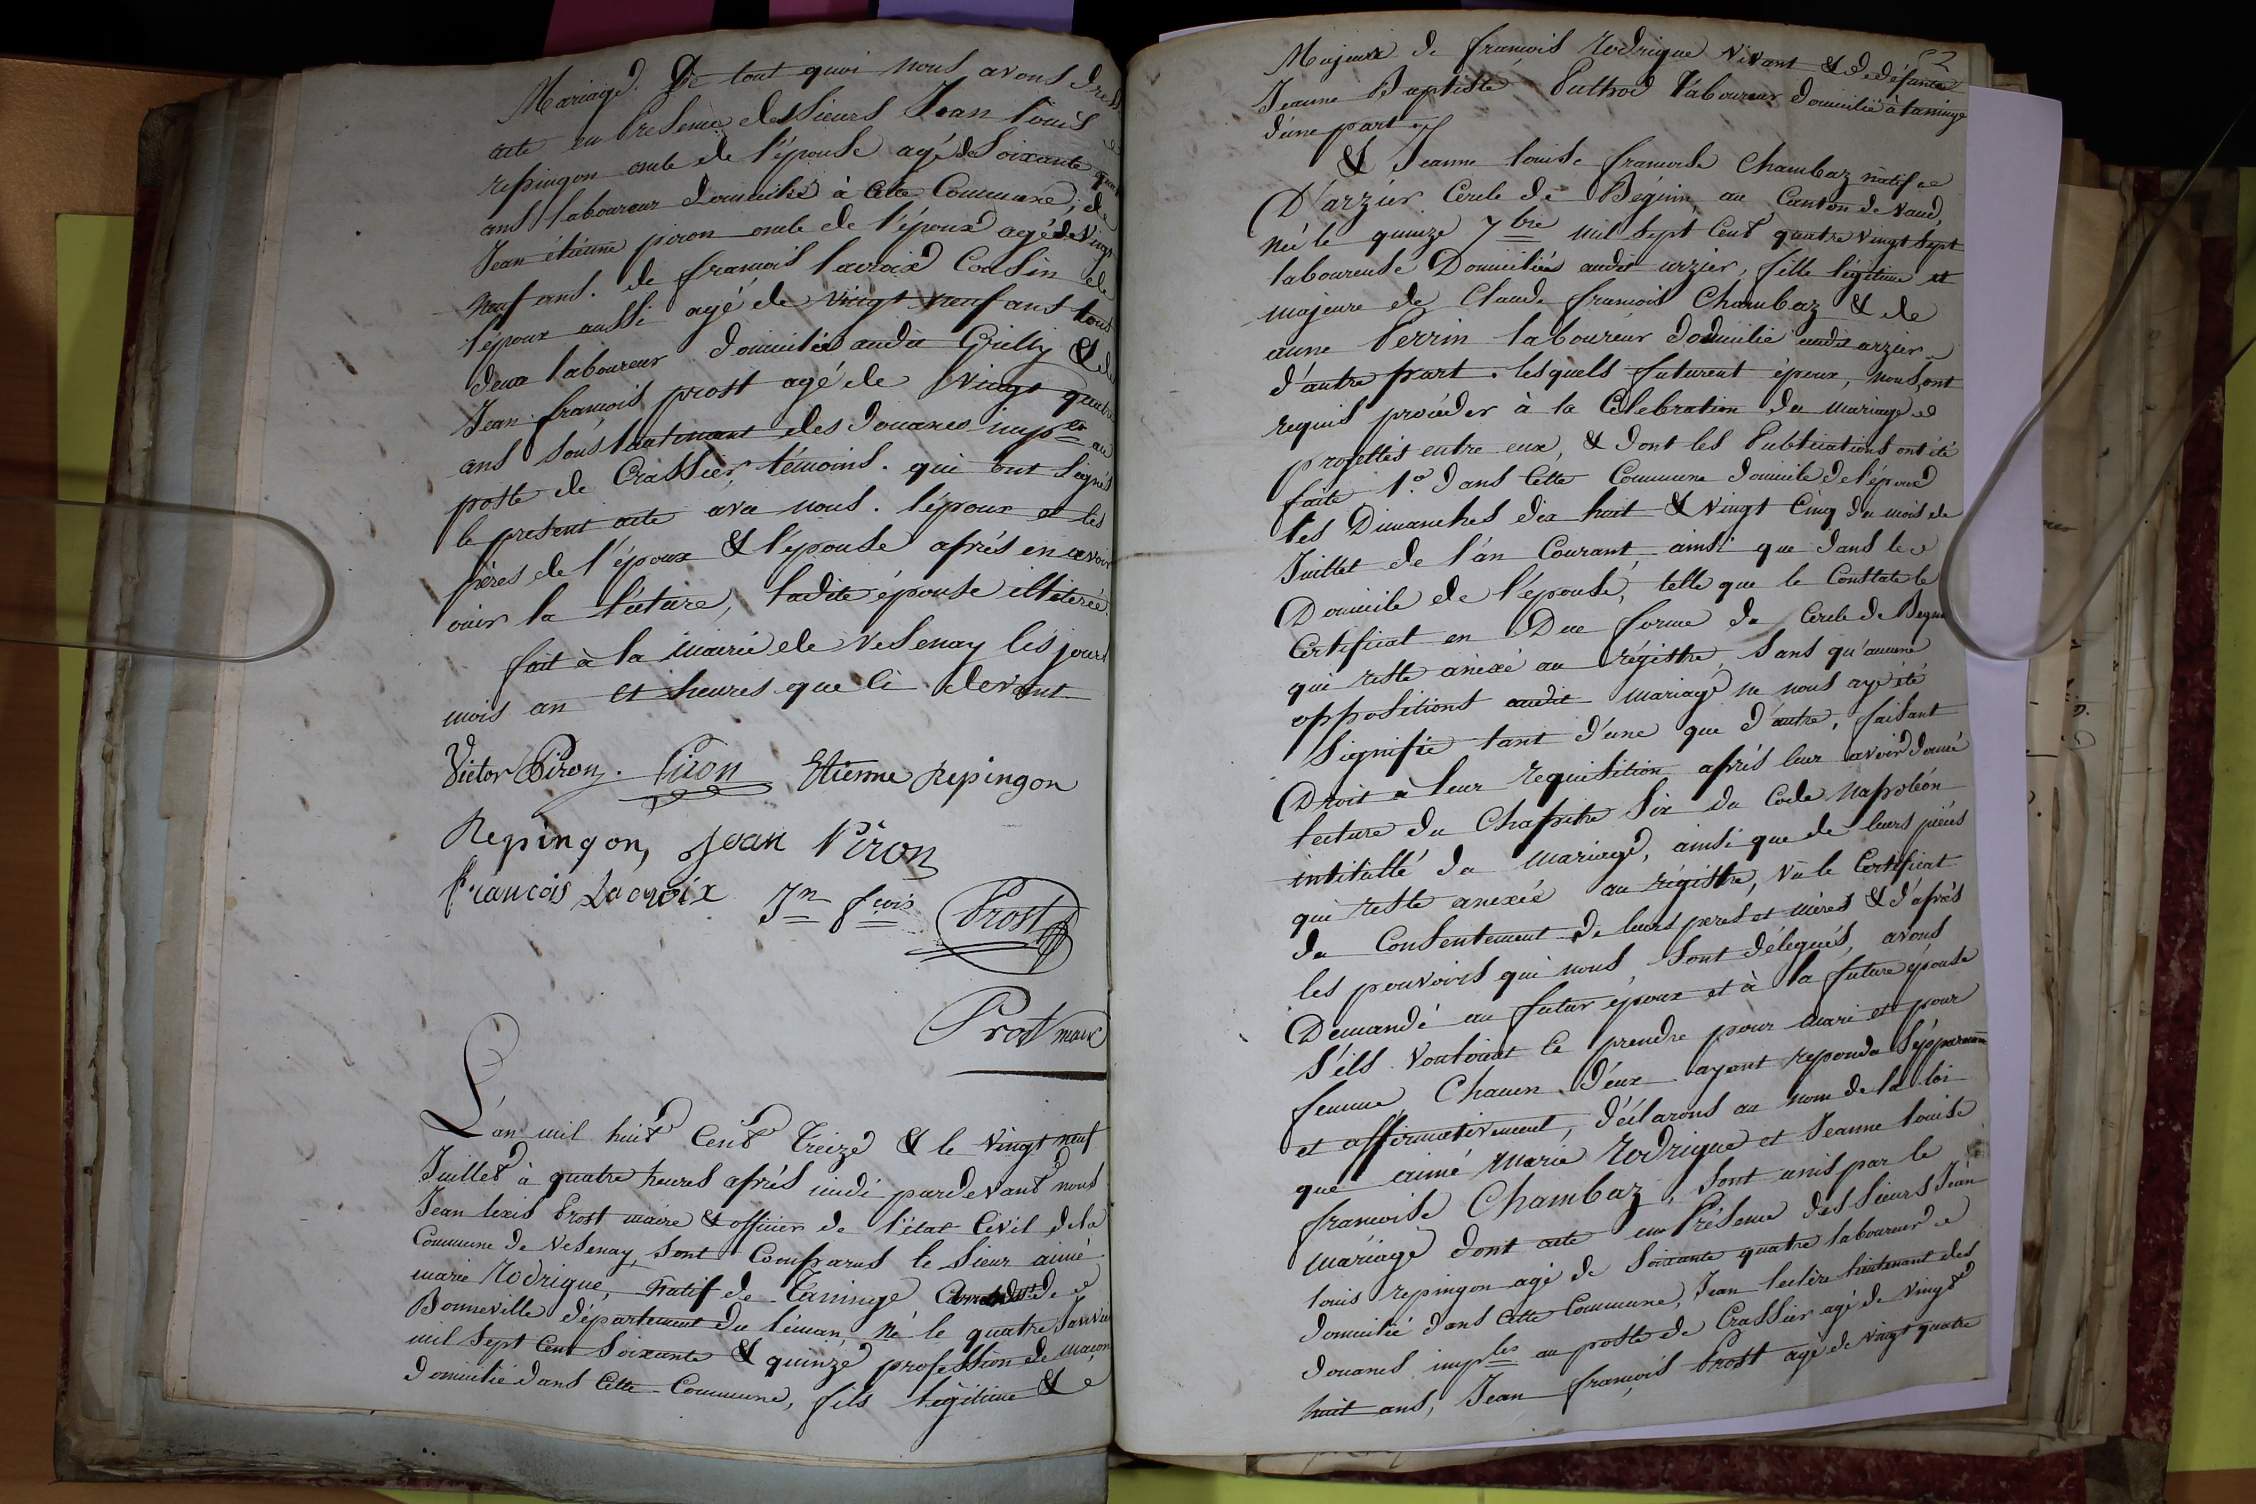 Mariage. De tout quoi nous avons dressé
acte en présence des sieurs Jean louis
repingon oncle de l'épouse agé de soixante quatre
ans laboureur domicilié à cette Commune, de
Jean étienne piron oncle de l'époux agé de vingt
neuf ans. de françois lacroix Cousin de
l'époux aussi agé de vingt neuf ans tous
deux laboureur domiciliés audit Grilly & de
Jean françois prost agé de vingt quatre
ans sous lieutenant des douanes imples au
poste de Crassier, témoins. qui ont signés
le present acte avec nous. l'époux et les
pères de l'époux & l'épouse après en avoir
ouir la lecture, ladite épouse illiterée.
fait à la mairie de Vesenay les jour
mois an et heures que ci devant
Victor Piron. Piron Etienne Repingon
Repingon, Jean Piron
francois Lacroix Jn fcois Prost
Prost maire
L'an mil huit Cent Treize & le vingt neuf
Juillet à quatre heures après midi pardevant nous
Jean lexis Prost maire & officier de l'état Civil de la
Commune de Vesenay, sont Comparus le sieur aimé
marie Rodrigue, natif de Taninge de
Bonneville département du léman, né le quatre Janvier
mil sept Cent soixante & quinze profession de maçon
domicilié dans Cette Commune, fils légitime &
52
Majeure de francois Rodrigue vivant & de défunte
Jeanne Baptiste Puthod laboureur domicilié à taninge
d'une part
& Jeanne louise francoise Chambaz natif
D'arzier Cercle de Béginin au Canton de Vaud,
née le quinze 7bre mil sept Cent quatre vingt sept
laboureuse Domiciliés audit arzier, fille légitime et
majeure de Claude francois Chambaz & de
anne Perrin laboureur domicilié audit arzier
d'autre part. lesquels futurent époux, nous ont
requis procéder à la Célebration du mariage
projettés entre eux, & dont les Publications ont été
faite 1o dans Cette Commune domicile de l'époux
les Dimanches dix huit & vingt Cinq du mois de
Juillet de l'an Courant, ainsi que dans le
Domicile de l'épouse, telle que le Constate le
Certificat en Due forme du Cercle de Begnin
qui reste anéxé au régistre, sans qu'aucune
oppositions audit mariage ne nous aye été
signifié tant d'une que d'autre, faisant
Droit a leur requisition, après leur avoir donné
lecture du Chapitre Six du Code Napoléon
intitullé du mariage, ainsi que de leurs pièces
qui reste anexée au régistre, Vu le Certificat
du Consentement de leurs peres et mères & d'après
les pouvoirs qui nous sont délegués, avons
Demandé au futur époux et à la future épouse
s'ils vouloient Ce prendre pour mari et pour
femme Chacun d'eux ayant repondu Sépparement
et affirmativement, déclarons au nom de la loi
que aimé Marie Rodrigue et Jeanne louise
francoise Chambaz, sont unis par le
mariage dont acte en Présence des sieurs Jean
louis repingon agé de soixante quatre laboureur
domicilié dans Cette Commune, Jean leclère lieutenant des
douanes imples au poste de Crassier agé de vingt
huit ans, Jean françois Prost agé de vingt quatre